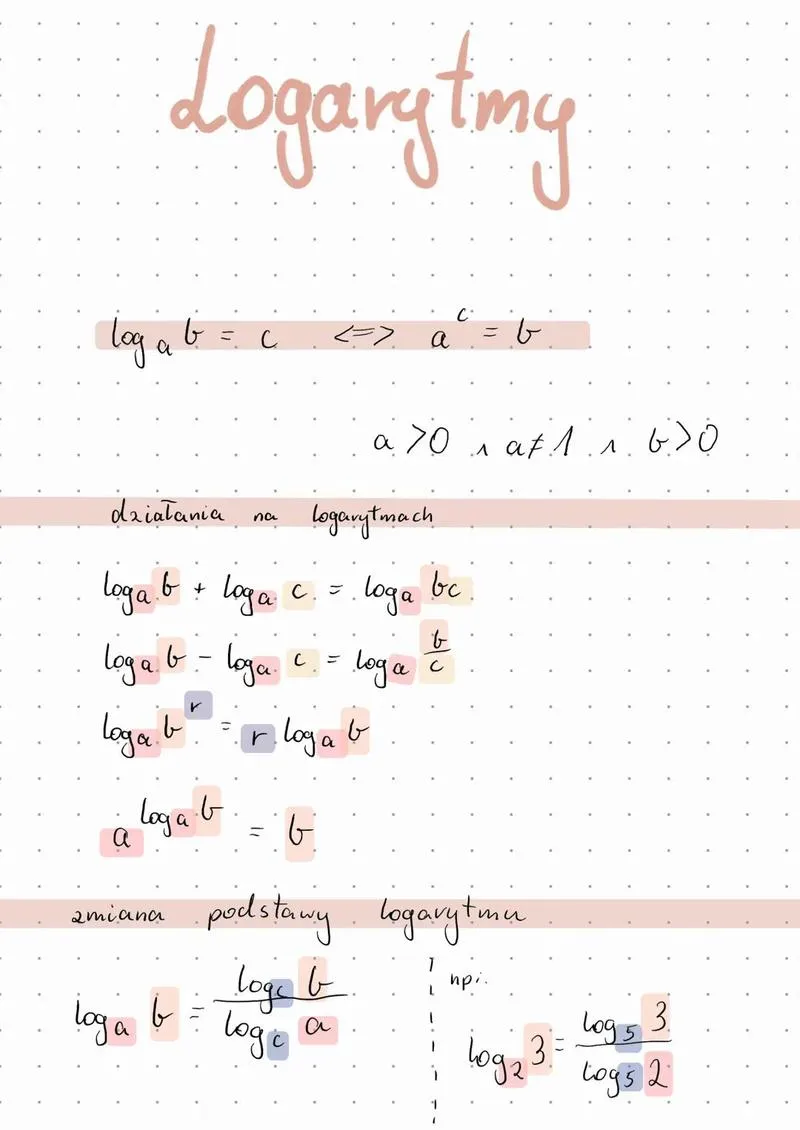 Logarytmy
logₐ b = c <=> aᶜ = b
a >0 ∧ a≠1 ∧ b>0
działania na logarytmach
logₐ b + logₐ c = logₐ bc
logₐ b - logₐ c = logₐ b/c
logₐ bʳ = r logₐ b
a^(logₐ b) = b
zmiana podstawy logarytmu
logₐ b = log_c b / log_c a
np:.
log₂ 3 = log₅ 3 / log₅ 2